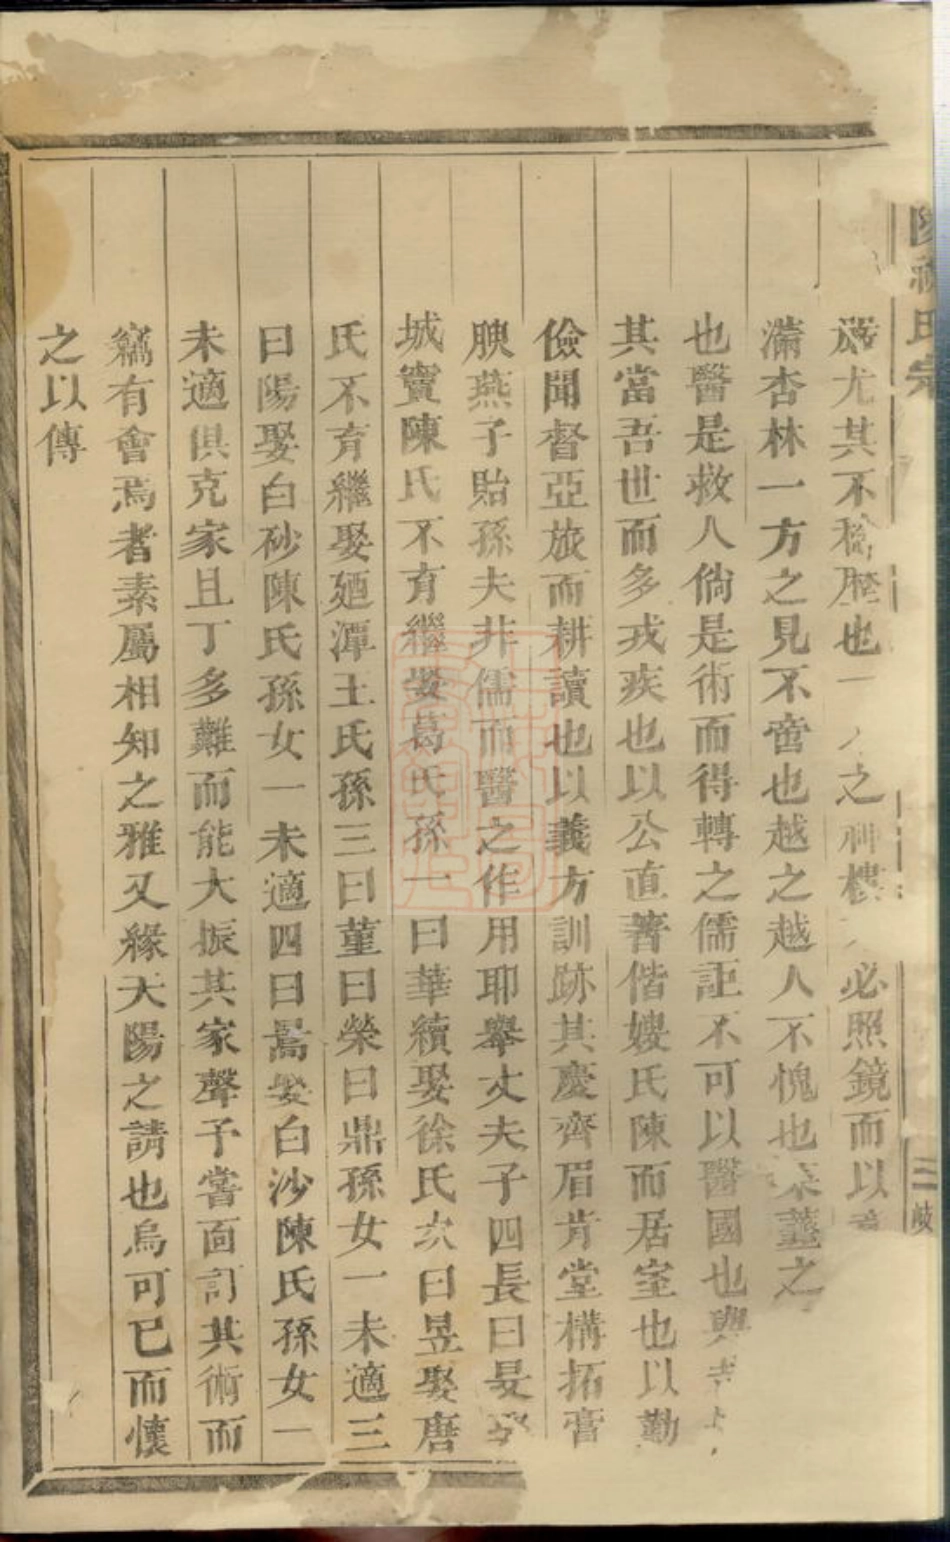 尤其不
也一
之
樓
必照鏡而以
滿杏林一方之見不啻也越之越人不愧也
之
也醫是救人倘是術而得轉之儒証不可以醫國也與
其當吾世而多戎疾也以公直著偕嫂氏陳而居室也以勤
儉聞督亞旅而耕讀也以義方訓跡其慶齊眉肯堂構拓膏
腴燕子貽孫夫非儒而醫之作用耶舉丈夫子四長曰旻
城竇陳氏不育繼娶葛氏孫一曰華續娶徐氏次曰昱娶唐
氏不育繼娶廼潭王氏孫三曰菫曰榮曰鼎孫女一未適三
曰陽娶白砂陳氏孫女一未適四曰暠娶白沙陳氏孫女一
未適俱克家且丁多難而能大振其家聲予嘗面訂其術而
竊有會焉者素屬相知之雅又緣天陽之請也烏可已而懷
之以傳
氏宗
三
岐